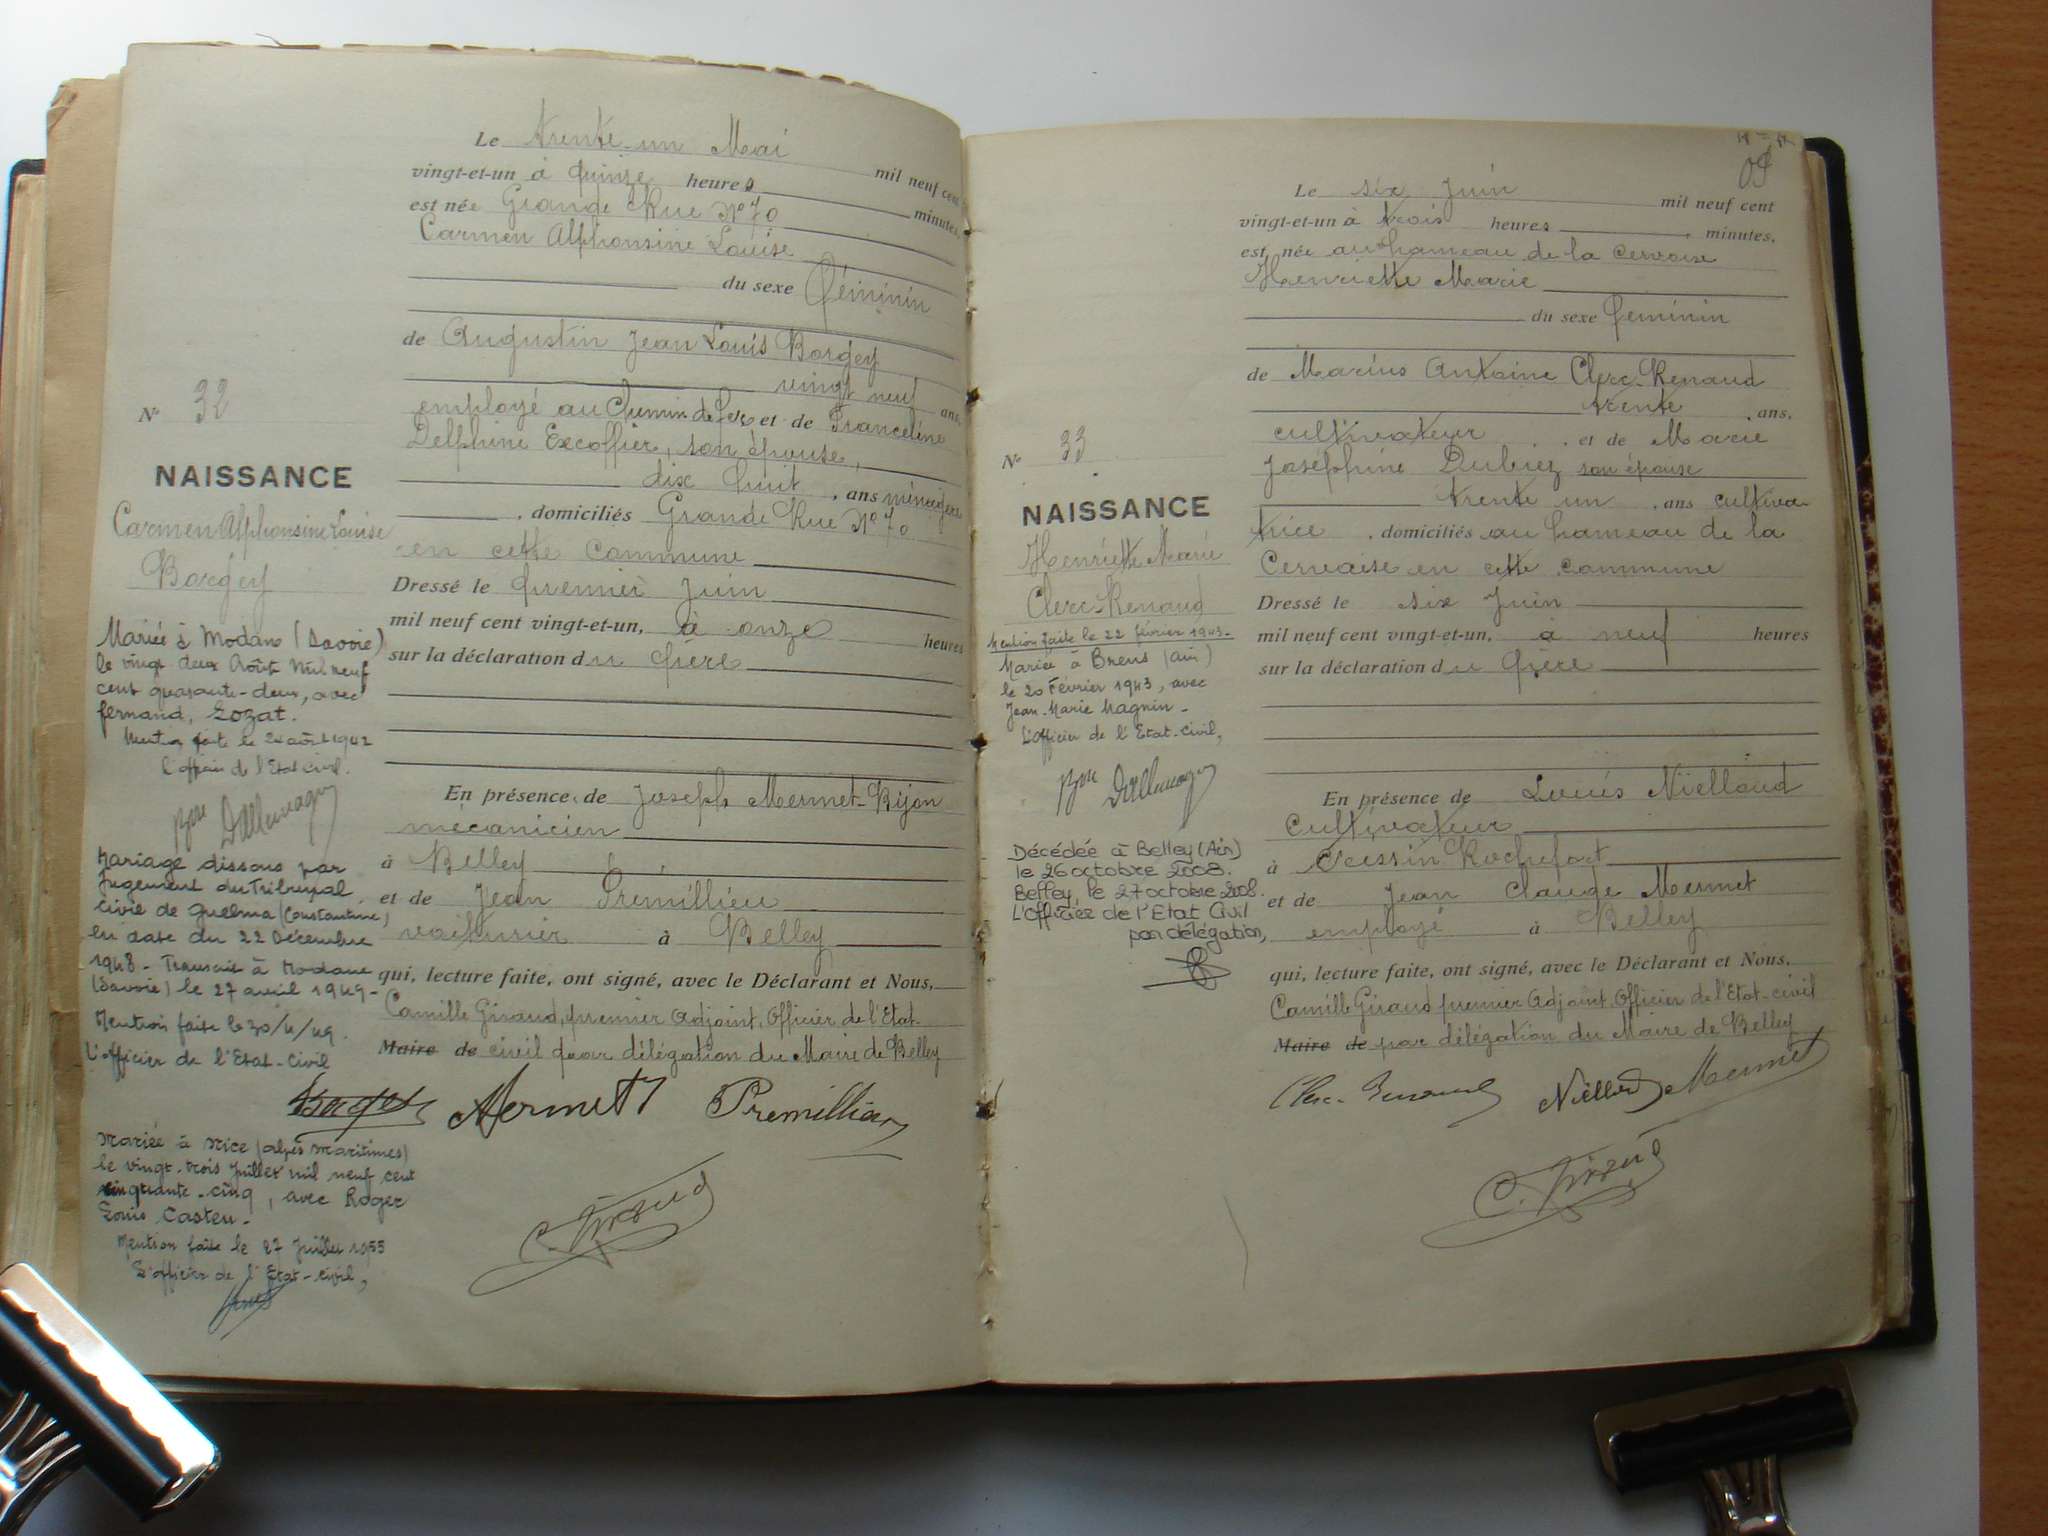 Le trente-un Mai mil neuf cent
vingt-et-un à quinze heures minutes,
est née Grande Rue N° 70
Carmen Alphonsine Louise
du sexe féminin
de Augustin Jean Louis Borgey
vingt neuf ans,
employé au Chemin de fer et de Franceline
Delphine Excoffier, son épouse,
dix huit, ans ménagère
, domiciliés Grande Rue N° 70
en cette commune
Dressé le premier Juin
mil neuf cent vingt-et-un, à onze heures
sur la déclaration du père
En présence de Joseph Mermet-Bijon
mecanicien
à Belley
et de Jean Premillieu
voiturier à Belley
qui, lecture faite, ont signé, avec le Déclarant et Nous,
Camille Giraud, premier adjoint, Officier de l'Etat-
Maire de civil par délégation du Maire de Belley
Borgey Mermet Premillieu
C. Giraud
N° 32
NAISSANCE
Carmen Alphonsine Louise
Borgey
Mariée à Modane (Savoie)
le vingt deux Août Mil neuf
cent quarante-deux, avec
fernand, Gozat.
Mention faite le 24 août 1942
l'officier de l'Etat civil.
Dallemagne
Mariage dissous par
Jugement du Tribunal
civil de Guelma (Constantine)
en date du 22 Décembre
1948 - Transcrit à Modane
(Savoie) le 27 avril 1949 -
Mention faite le 30/4/49.
L'officier de l'Etat-Civil
Mariée à Nice (alpes maritimes)
le vingt-trois Juillet mil neuf cent
cinquante-cinq, avec Roger
Louis Casteu -
Mention faite le 27 Juillet 1955
L'officier de l'Etat-civil,
Le six Juin mil neuf cent
vingt-et-un à trois heures minutes,
est née au hameau de la Cervaise
Henriette Marie
du sexe féminin
de Marius Antoine Clerc-Renaud
trente, ans,
cultivateur et de Marie
Joséphine Dubiez son épouse
trente un, ans cultiva-
trice, domiciliés au hameau de la
Cervaise en cette commune
Dressé le six Juin
mil neuf cent vingt-et-un, à neuf heures
sur la déclaration du père
En présence de Louis Nielloud
Cultivateur
à Cressin Rochefort
et de Jean Claude Mermet
employé à Belley
qui, lecture faite, ont signé, avec le Déclarant et Nous,
Camille Giraud premier Adjoint, Officier de l'Etat-civil
Maire de par délégation du Maire de Belley
Clerc-Renaud Niélloud Mermet
C. Giraud
N° 33
NAISSANCE
Henriette Marie
Clerc-Renaud
Mention faite le 22 février 1943-
Mariée à Brens (Ain)
le 20 Février 1943, avec
Jean-Marie Magnin -
L'officier de l'Etat-civil,
Dallemagne
Décédée à Belley (Ain)
le 26 octobre 2008.
Belley, le 27 octobre 2008.
L'Officier de l'Etat Civil
par délégation,